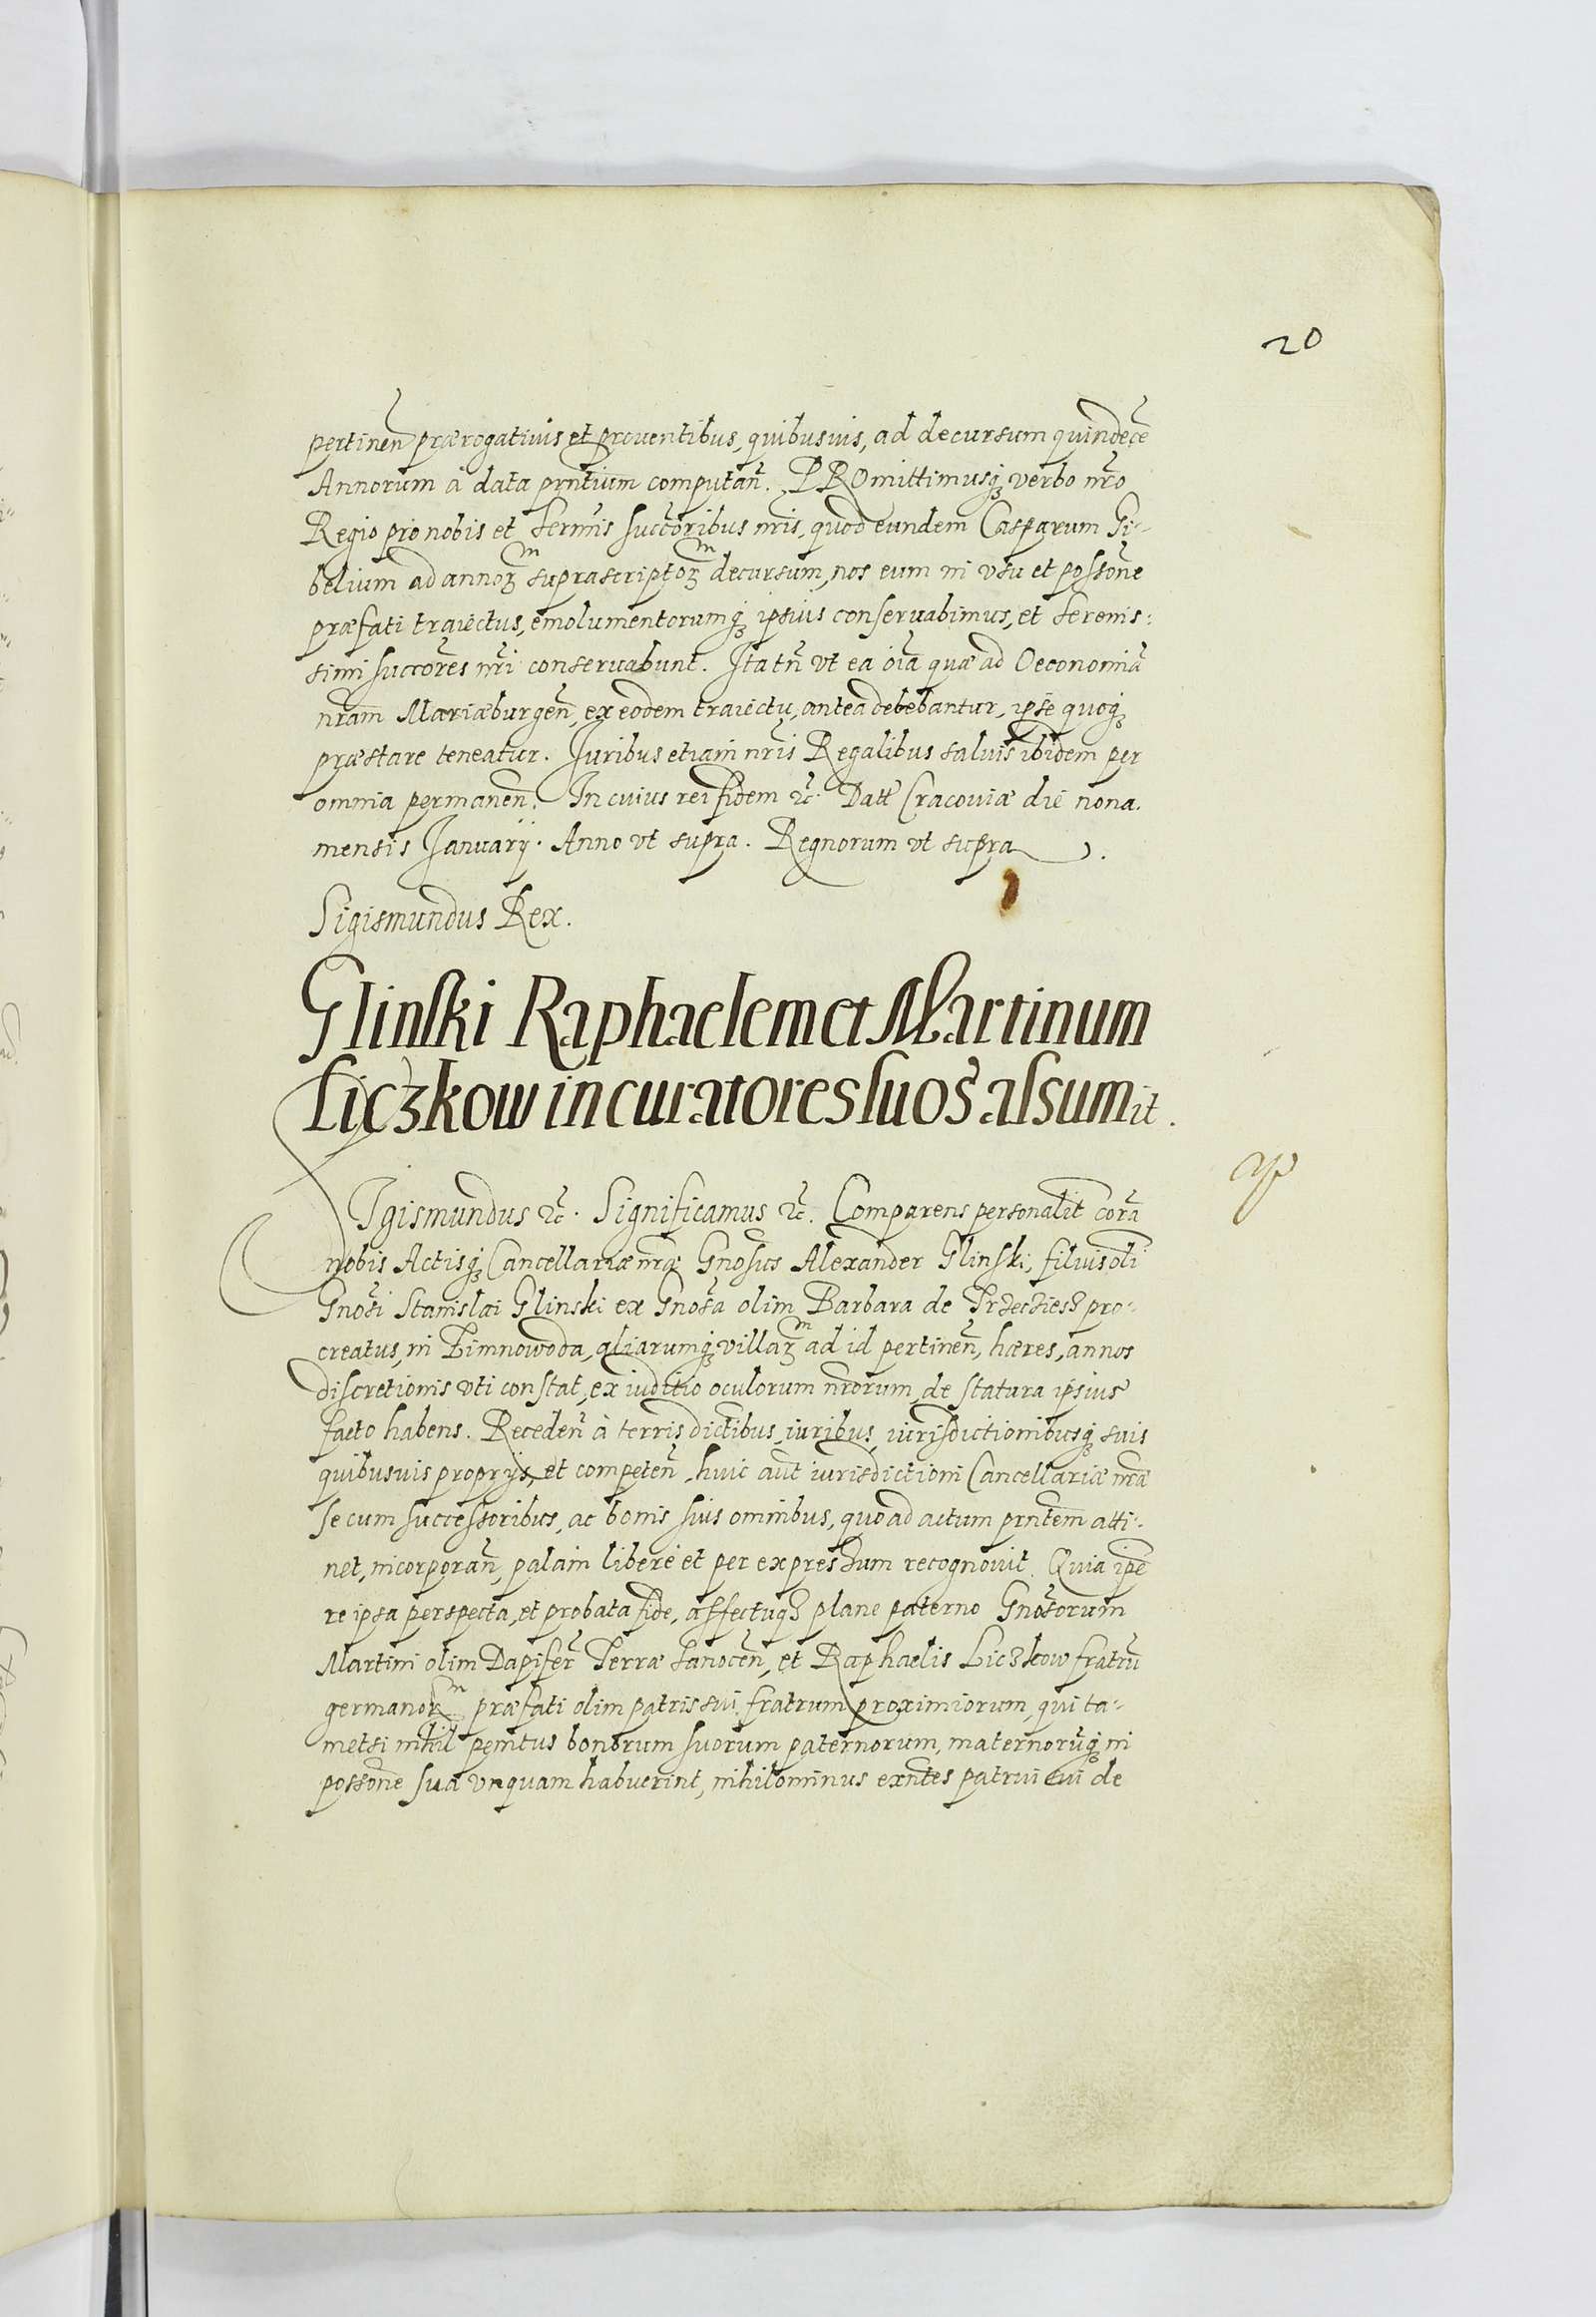 20
pertineñ prærogativis et proventibus, quibusvis, ad decursum quindecẽ
Annorum à data prñtium computañ. PROmittimusq̃ verbo nr̃o
Regio pro nobis et Sermis succoribus nr̃is, quod eundem Casparum Gi-
belium ad annoꝝ supra scriptoꝝ decursum, nos eum in usu et possone
præfati traiectus, emolumentorumq̃ ipsius conservabimus, et Serenis:
simi succores nr̃i conservabunt. Ita tñ ut ea oĩa quæ ad Oeconomiã
nrãm Mariæburgeñ, ex eodem traiectu, antea debebantur, ipse quoq̃
præstare teneatur. Juribus etiam nr̃is Regalibus salvis ibidem per
omnia permaneñ. In cuius rei fidem ꝛc. Datt Cracoviæ die nona.
mensis Januarij. Anno ut supra. Regnorum ut supra.
Sigismundus Rex.
Glinski Raphaelem et Martinum
Liczkow in curatores suos assumit.
Sigismundus ꝛc. Significamus ꝛc. Comparens personalit corã
nobis Actisq̃ Cancellariæ nr̃æ Gnosus Alexander Glinski, filius oli
Gnosi Stanislai Glinski ex Gnosa olim Barbara de pro-
creatus, in Zimnowoda, aliarumq̃ villaꝝ ad id pertineñ, hæres, annos
discretionis uti constat, ex iuditio oculorum nrorum, de statura ipsius
facto habens. Recedeñ à terris dictibus, iuribus, iurisdictionibusq̃ suis
quibusvis proprijs, et competeñ, huic aut̃ iurisdictioni Cancellariæ nr̃æ
se cum successoribus, ac bonis suis omnibus, quo ad actum prñtem atti-
net, incorporañ, palam libere et per expressum recognovit. Quia ipẽ
re ipsa perspecta, et probata fide, affectuq̃ plane paterno Gnosorum
Martini olim Dapiferi Terræ Sanoceñ, et Raphaelis Liczkow fratrũ
germanoꝝ præfati olim patris sui, fratrum proximiorum, qui ta-
metsi nihil penitus bonorum suorum paternorum, maternorũq̃ in
possone sua unquam habuerint, nihilominus exñtes patrui sui de